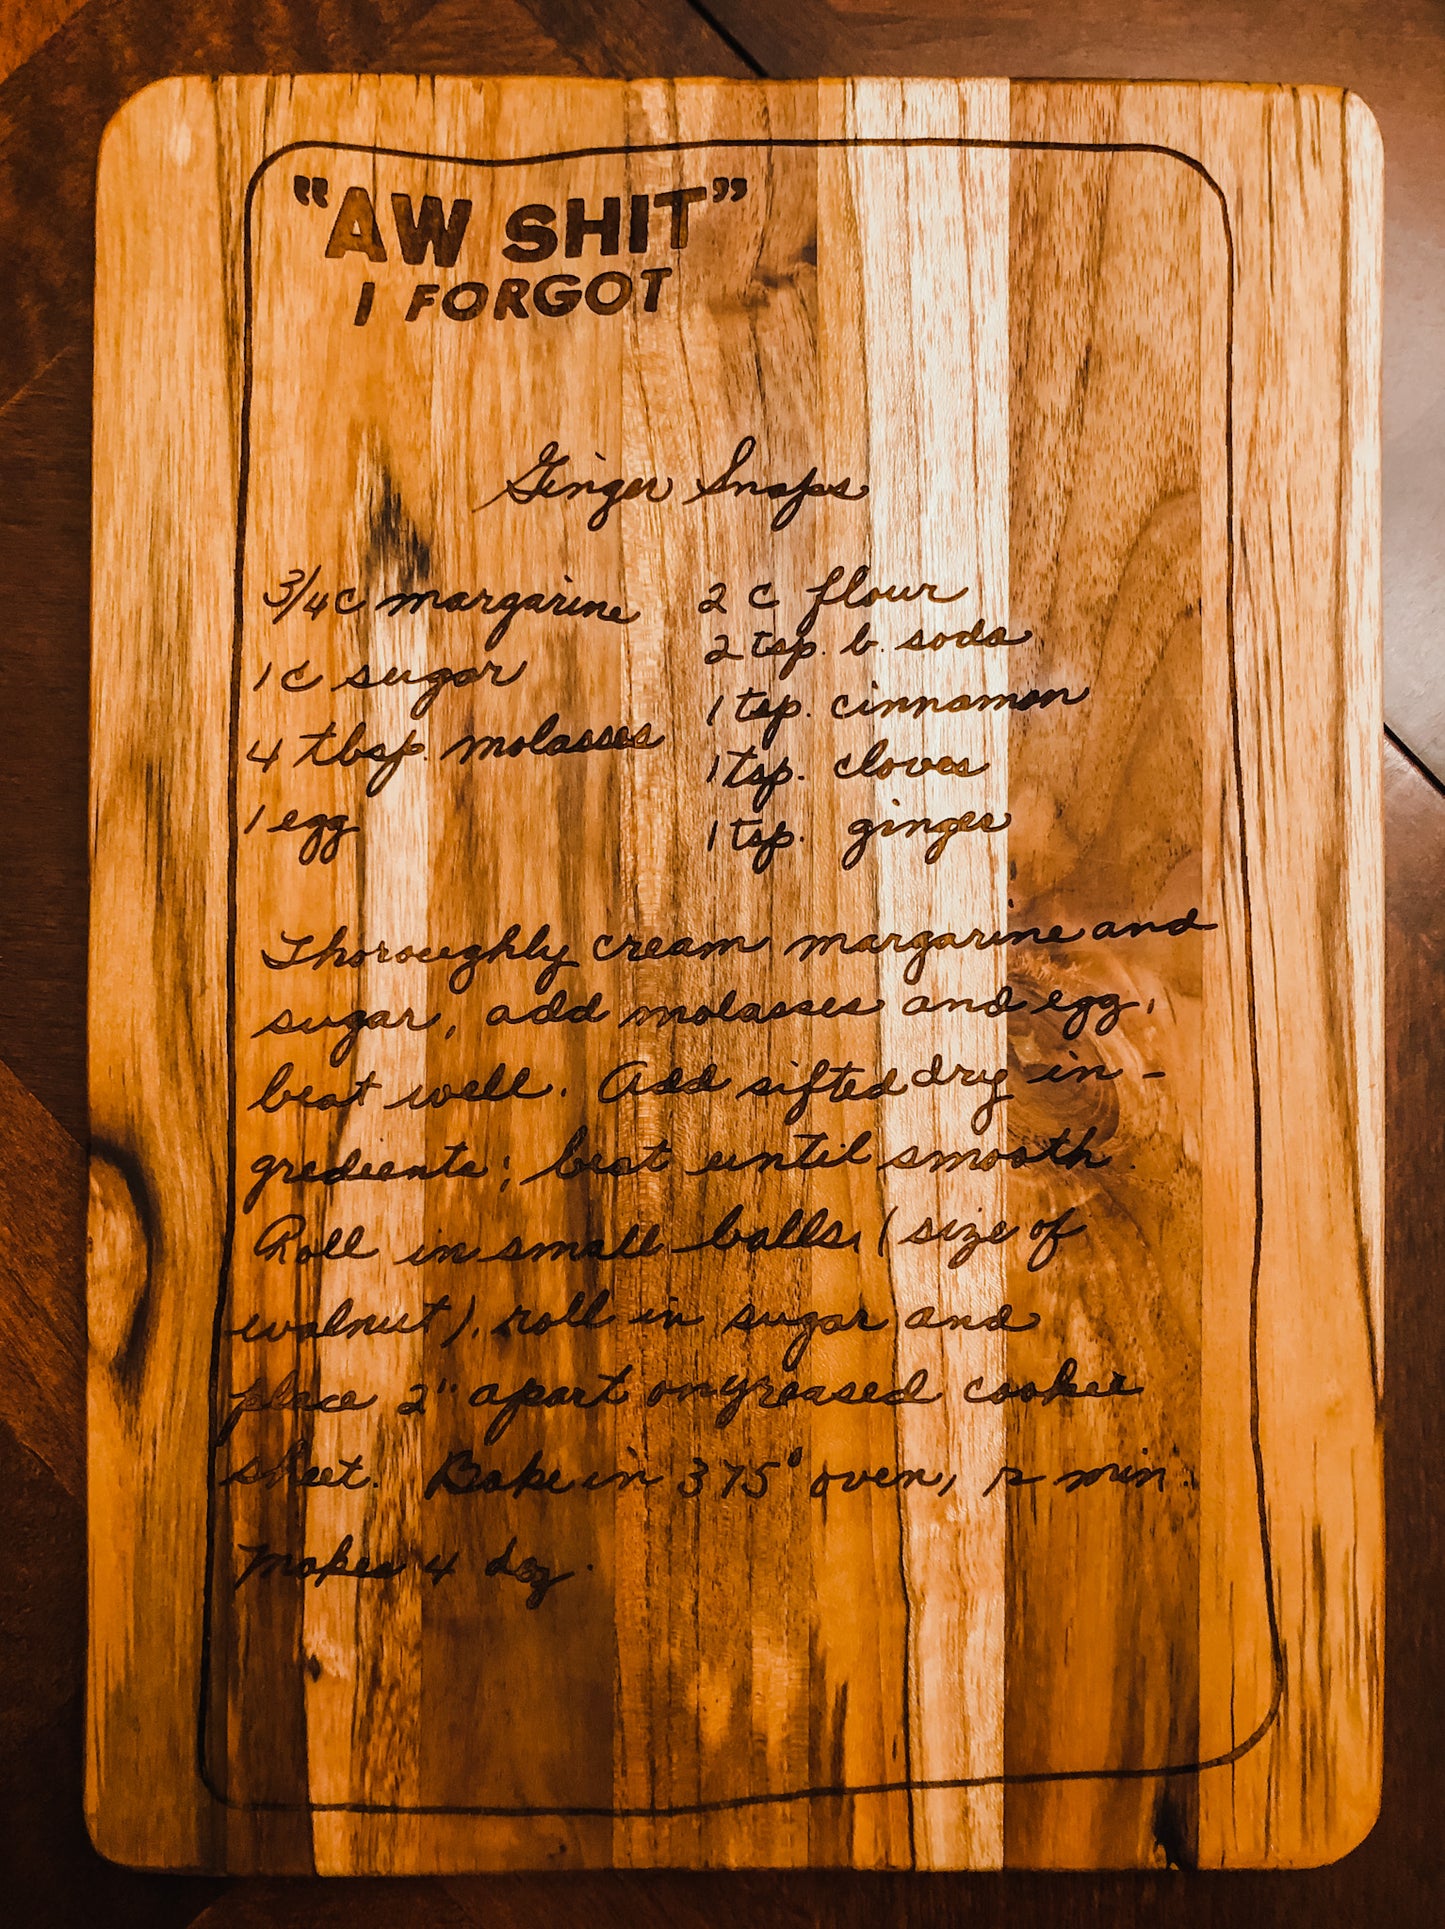 "AW SHIT"
I FORGOT
Ginger Snaps
3/4 c margarine
1 c sugar
4 tbsp. molasses
1 egg
2 c flour
2 tsp. b. soda
1 tsp. cinnamon
1 tsp. cloves
1 tsp. ginger
Thoroughly cream margarine and
sugar, add molasses and egg,
beat well. Add sifted dry in-
gredients; beat until smooth.
Roll in small balls, (size of
walnut), roll in sugar and
place 2" apart on greased cookie
sheet. Bake in 375° oven, 12 min.
Makes 4 doz.